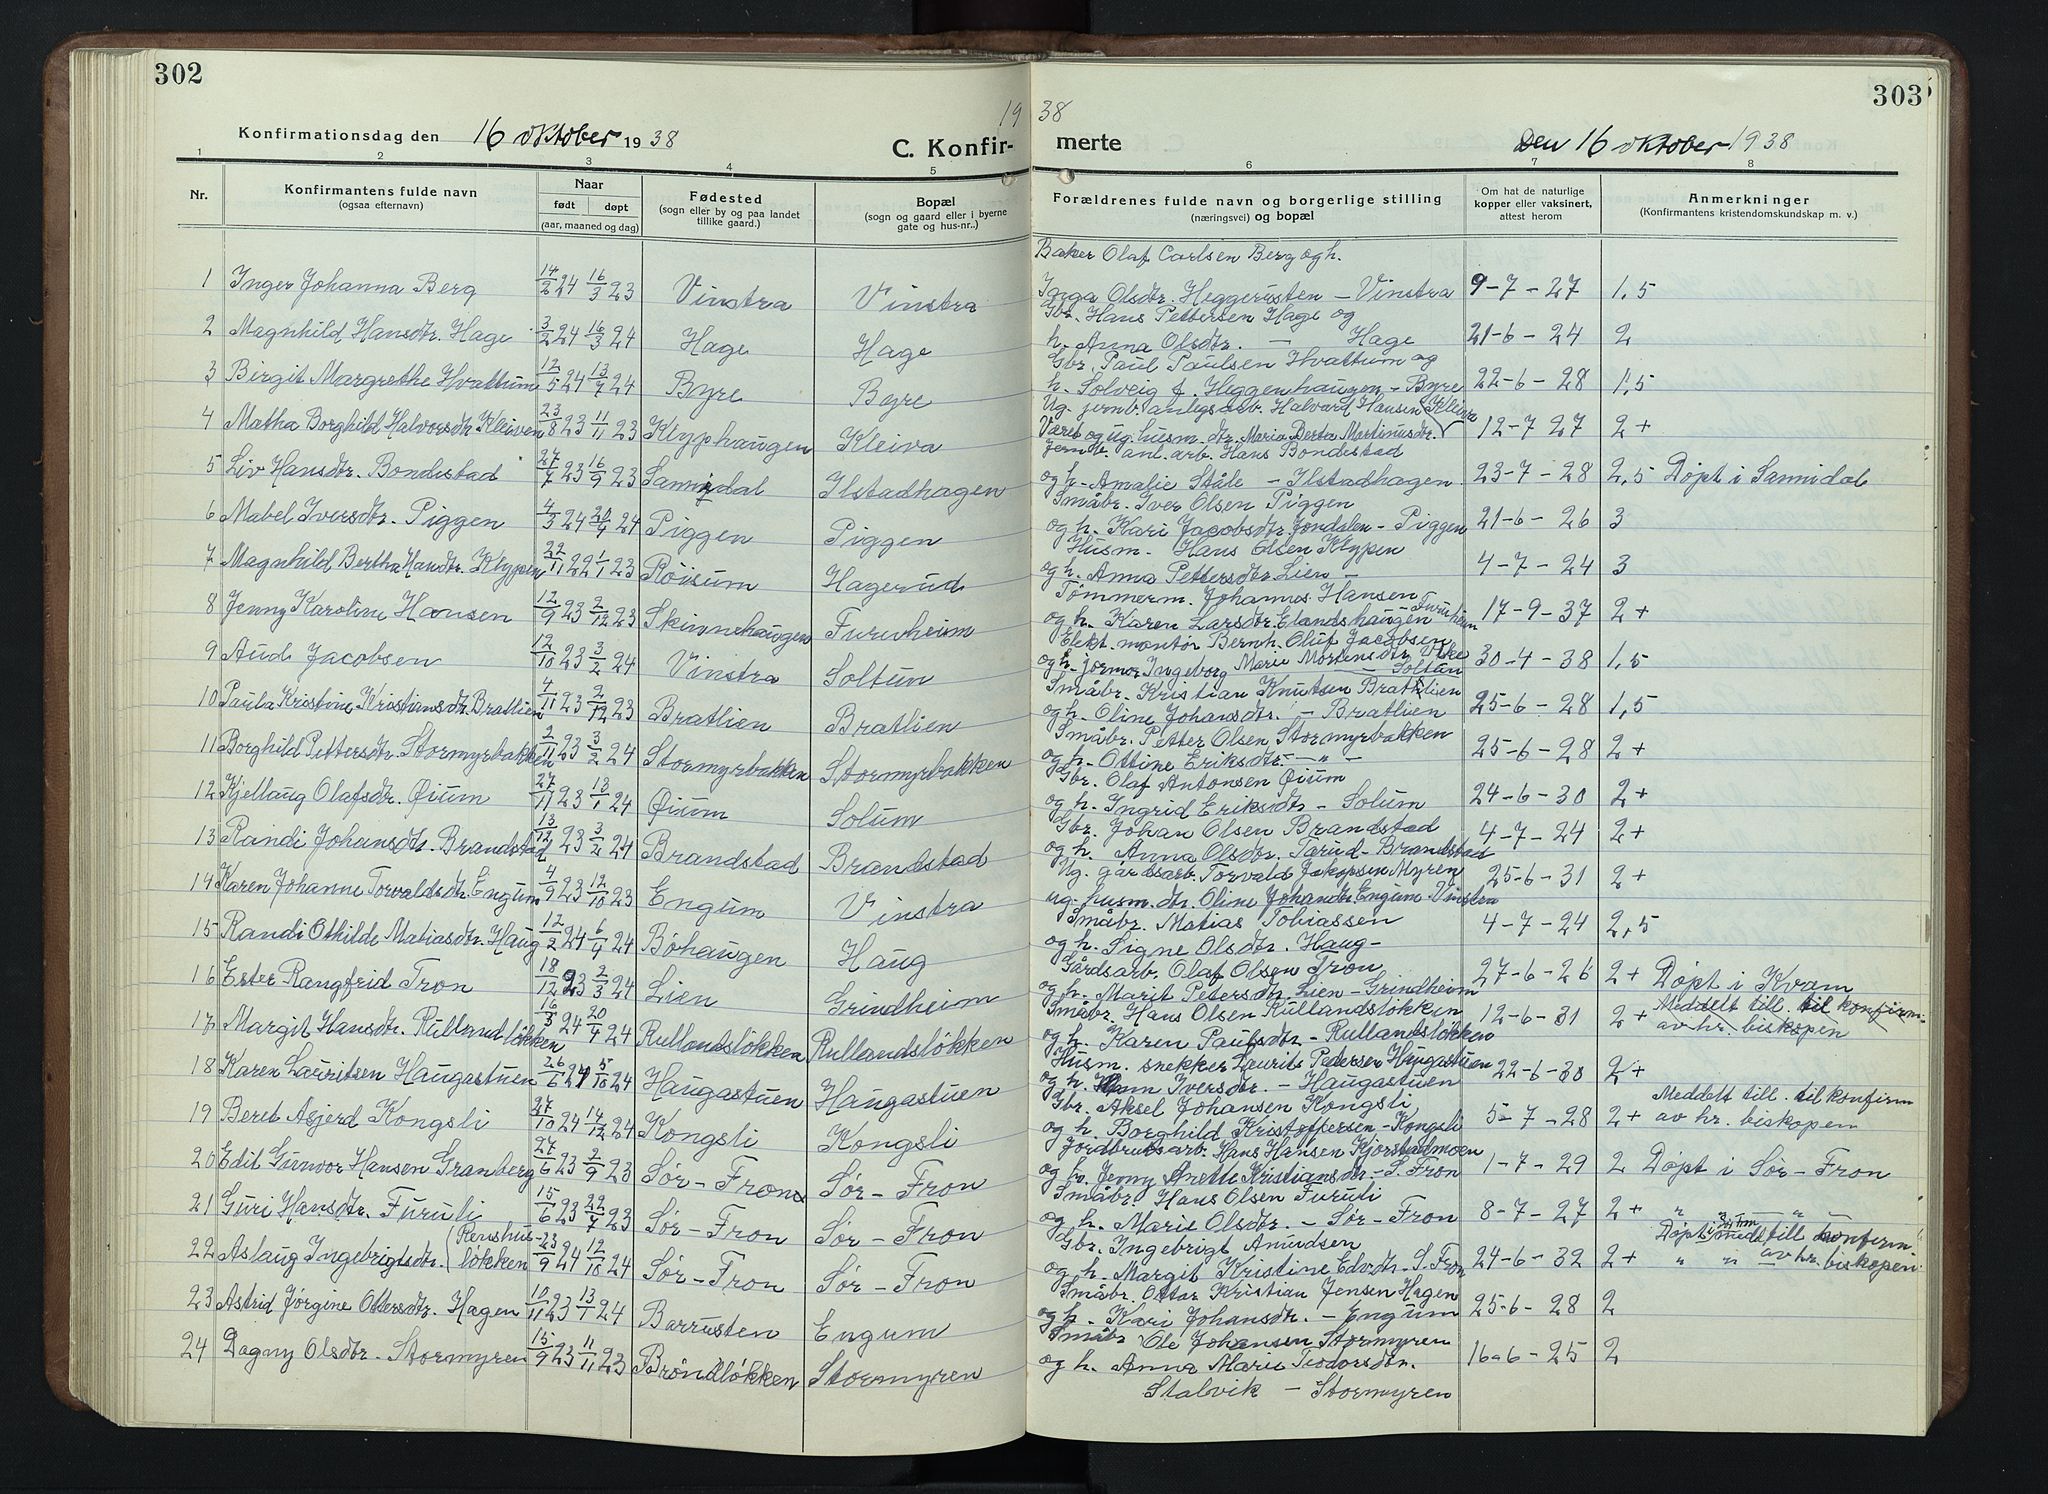 302
Konfirmationsdag den 16 oktober 1938
C. Konfir-
19
1 2 3 4 5
Nr.
Konfirmantens fulde navn
(ogsaa efternavn)
Naar
født døpt
(aar, maaned og dag)
Fødested
(sogn eller by og paa landet
tillike gaard.)
Bopæl
(sogn og gaard eller i byerne
gate og hus-nr.)
1 Inger Johanna Berg 14/2 24 16/3 23 Vinstra Vinstra
2 Magnhild Hansdtr. Hage 3/2 24 16/3 24 Hage Hage
3 Birgit Margrethe Hvattum 12/5 24 13/7 24 Byre Byre
4 Matha Borghild Halvorsdtr. Kleiven 23/8 23 11/11 23 Klyphaugen Kleiva
5 Liv Hansdtr. Bondestad 27/7 23 16/9 23 Sannidal Ilstadhagen
6 Mabel Iversdtr. Piggen 4/3 24 20/4 24 Piggen Piggen
7 Magnhild Bertha Handtr. Klypen 22/11 22 1/1 23 Röisum Hagerud
8 Jenny Karoline Hansen 12/9 23 2/12 23 Skinnehaugen Furuheim
9 Aud Jacobsen 12/10 23 3/2 24 Vinstra Soltun
10 Paula Kristine Kristiansdtr. Bratlien 4/11 23 2/12 23 Bratlien Bratlien
11 Borghild Pettersdtr. Stormyrbakken 2/11 23 3/2 24 Stormyrbakken Stormyrbakken
12 Kjellaug Olafsdtr. Øium 27/11 23 13/1 24 Øium Solum
13 Randi Johansdtr. Brandstad 13/12 23 3/2 24 Brandstad Brandstad
14 Karen Johanne Torvaldsdtr. Engum 4/9 23 12/10 23 Engum Vinstra
15 Randi Othilde Matiasdtr. Haug 12/2 24 6/4 24 Böhaugen Haug
16 Ester Rangfrid Tron 18/12 23 2/3 24 Lien Grindheim
17 Margit Hansdtr. Rullandslökken 16/3 24 20/4 24 Rullandslökken Rullandslökken
18 Karen Lauritsen Haugastuen 26/6 24 5/10 24 Haugastuen Haugastuen
19 Beret Asjerd Kongsli 27/10 24 14/12 24 Kongsli Kongsli
20 Edit Gunvor Hansen Granberg 27/6 23 2/9 23 Sør-Fron Sør-Fron
21 Guri Hansdtr. Furuli 15/6 23 22/7 23 Sør-Fron Sør-Fron
22 Aslaug Ingebrigtsdtr. (Renshus-lökken 23/9 24 12/10 24 Sør-Fron Sør-Fron
23 Astrid Jørgine Ottersdtr. Hagen 10/11 23 13/1 24 Barrusten Engum
24 Dagny Olsdtr. Stormyren 15/9 23 11/11 23 Bröndlökken Stormyren
303
38
merte
Den 16 oktober 1938
6 7 8
Forældrenes fulde navn og borgerlige stilling
(næringsvei) og bopæl
Om hat de naturlige
kopper eller vaksinert,
attest herom
Anmerkninger
(Konfirmantens kristendomskundskap m. v.)
Baker Olaf Carlsen Berg og h.
Inga Olsdtr. Heggerusten - Vinstra 9-7-27 1,5
Gbr. Hans Pettersen Hage og
h. Anna Olsdtr. - Hage 21-6-24 2
Gbr. Paul Paulsen Hvattum og
h. Solveig f. Heggenhaugen - Byre 22-6-28 1,5
Ug. jernb. anlegsarb. Halvard Hansen Kleiva
og ug. husm. dtr. Maria Berta Martinusdtr. 12-7 27 2+
Jernb. anl. arb. Hans Bondestad
og h. Amalie Ståle - Ilstadhagen 23-7-28 2,5 Døpt i Sannidal
Småbr. Iver Olsen Piggen
og h. Kari Jacobsdtr. Jondalen - Piggen 21-6-26 3
Husm. Hans Olsen Klypen
og h. Anna Pettersdtr. Lien - 4-7-24 3
Tömmerm. Johannes Hansen
og h. Karen Larsdtr. Elandshaugen Furuheim 17-9-37 2+
Elekt. montör Bernh. Oluf Jacobsen
og h. jormor Ingeborg Marie Mortensdtr. Vike Soltun 30-4-38 1,5
Småbr. Kristian Knutsen Bratlien
og h. Oline Johansdtr. - Bratlien 25-6-28 1,5
Småbr. Petter Olsen Stormyrbakken
og h. Ottine Eriksdtr. - " - 25-6-28 2+
Gbr. Olaf Antonsen Øium
og h. Ingrid Eriksdtr - Solum 24-6-30 2+
Gbr. Johan Olsen Brandstad
og h. Anna Olsdtr. Tarud - Brandstad 4-7-24 2+
Ug. gårdsarb. Torvald Jakopsen Myren
ug. husm. dtr. Oline Johandtr. Engum - Vinstra 25-6-31 2+
Småbr. Matias Tobiassen
og h. Signe Olsdtr. Haug - 4-7-24 2,5
Gårdsarb. Olaf Olsen Tron
og h. Marit Petersdtr. Lien - Grindheim 27-6-26 2+ Döpt i Kvam
Småbr. Hans Olsen Rullandslökken
og h. Karen Paulsdtr - Rullandslökken 12-6-31 2+ Meddelt till. til konfirm. av hr. biskopen
Husm. snekker Laurits Pedersen Haugastuen
og h. Iversdtr. - Haugastuen 22-6-30 2+
Gbr. Aksel Johansen Kongsli
og h. Borghild Kristoffersen - Kongsli 5-7-28 2+ Meddelt till. til konfirm av hr. biskopen
Jordbruksarb. Hans Hansen Kjorstadmoen
og h. Jenny Anette Kristiansdtr - S. Fron 1-7-29 2 Döpt i Sør-Fron
Småbr. Hans Olsen Furuli
og h. Marie Olsdtr. - Sør-Fron 8-7-27 2+ " " - " -
Gbr. Ingebrigt Amundsen
og h. Margit Kristine Edv.dtr - S. Fron 24-6-32 2+ Døpt i till konfirm. av hr. biskopen.
Småbr. Ottar Kristian Jensen Hagen
og h. Kari Johansdtr. - Engum 25-6-28 2
Småbr Ole Johansen Stormyren
og h. Anna Marie Teodorsdtr. 16-6-25 2
Stalvik - Stormyren